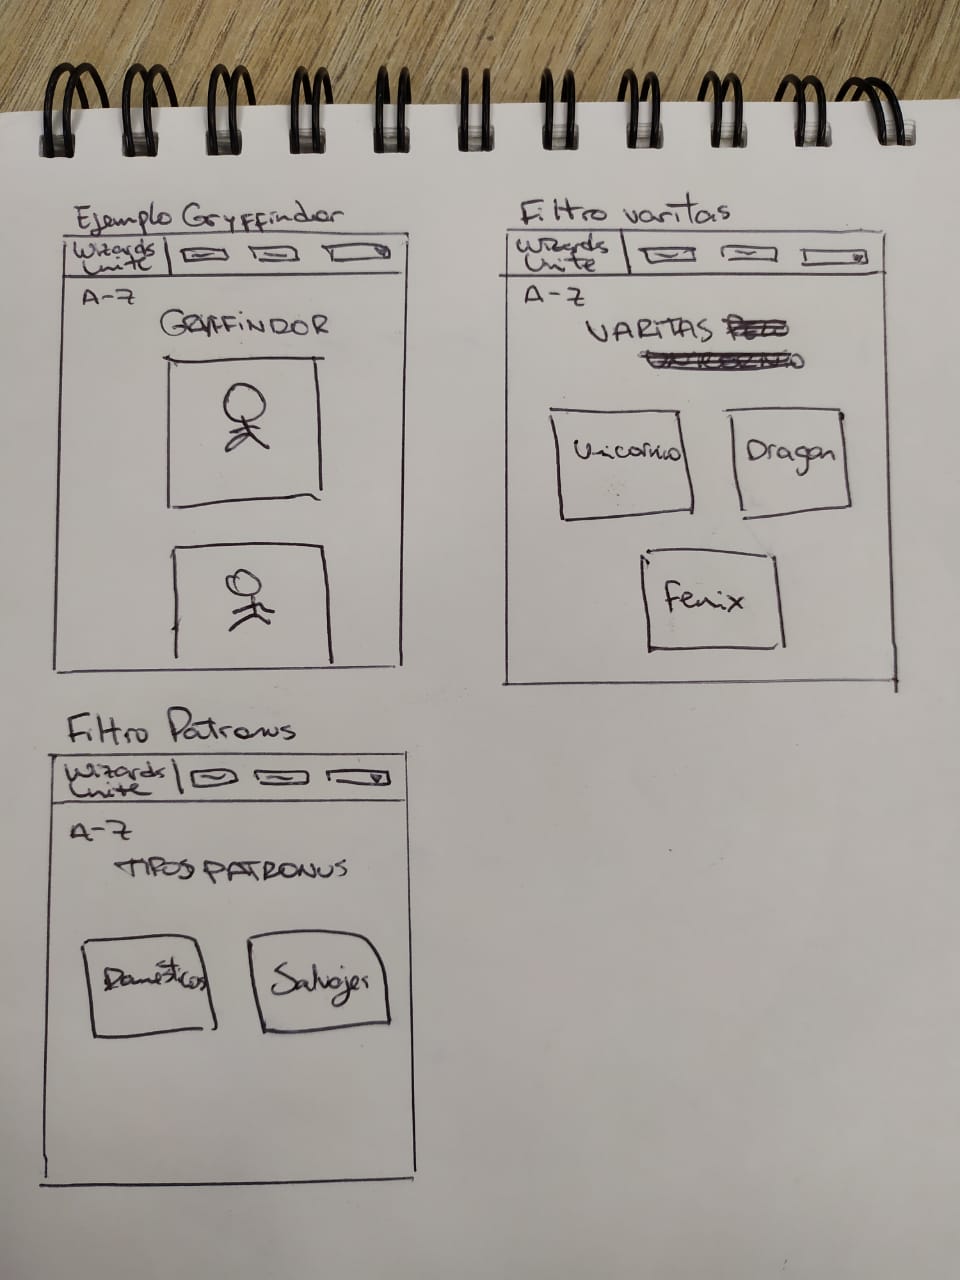 Ejemplo Gryffindor
Wizards
Unite
A-Z
GRYFFINDOR
Filtro varitas
Wizards
Unite
A-Z
VARITAS
Unicornio
Dragon
Fenix
Filtro Patronus
Wizards
Unite
A-Z
TIPOS PATRONUS
Domésticos
Salvajes